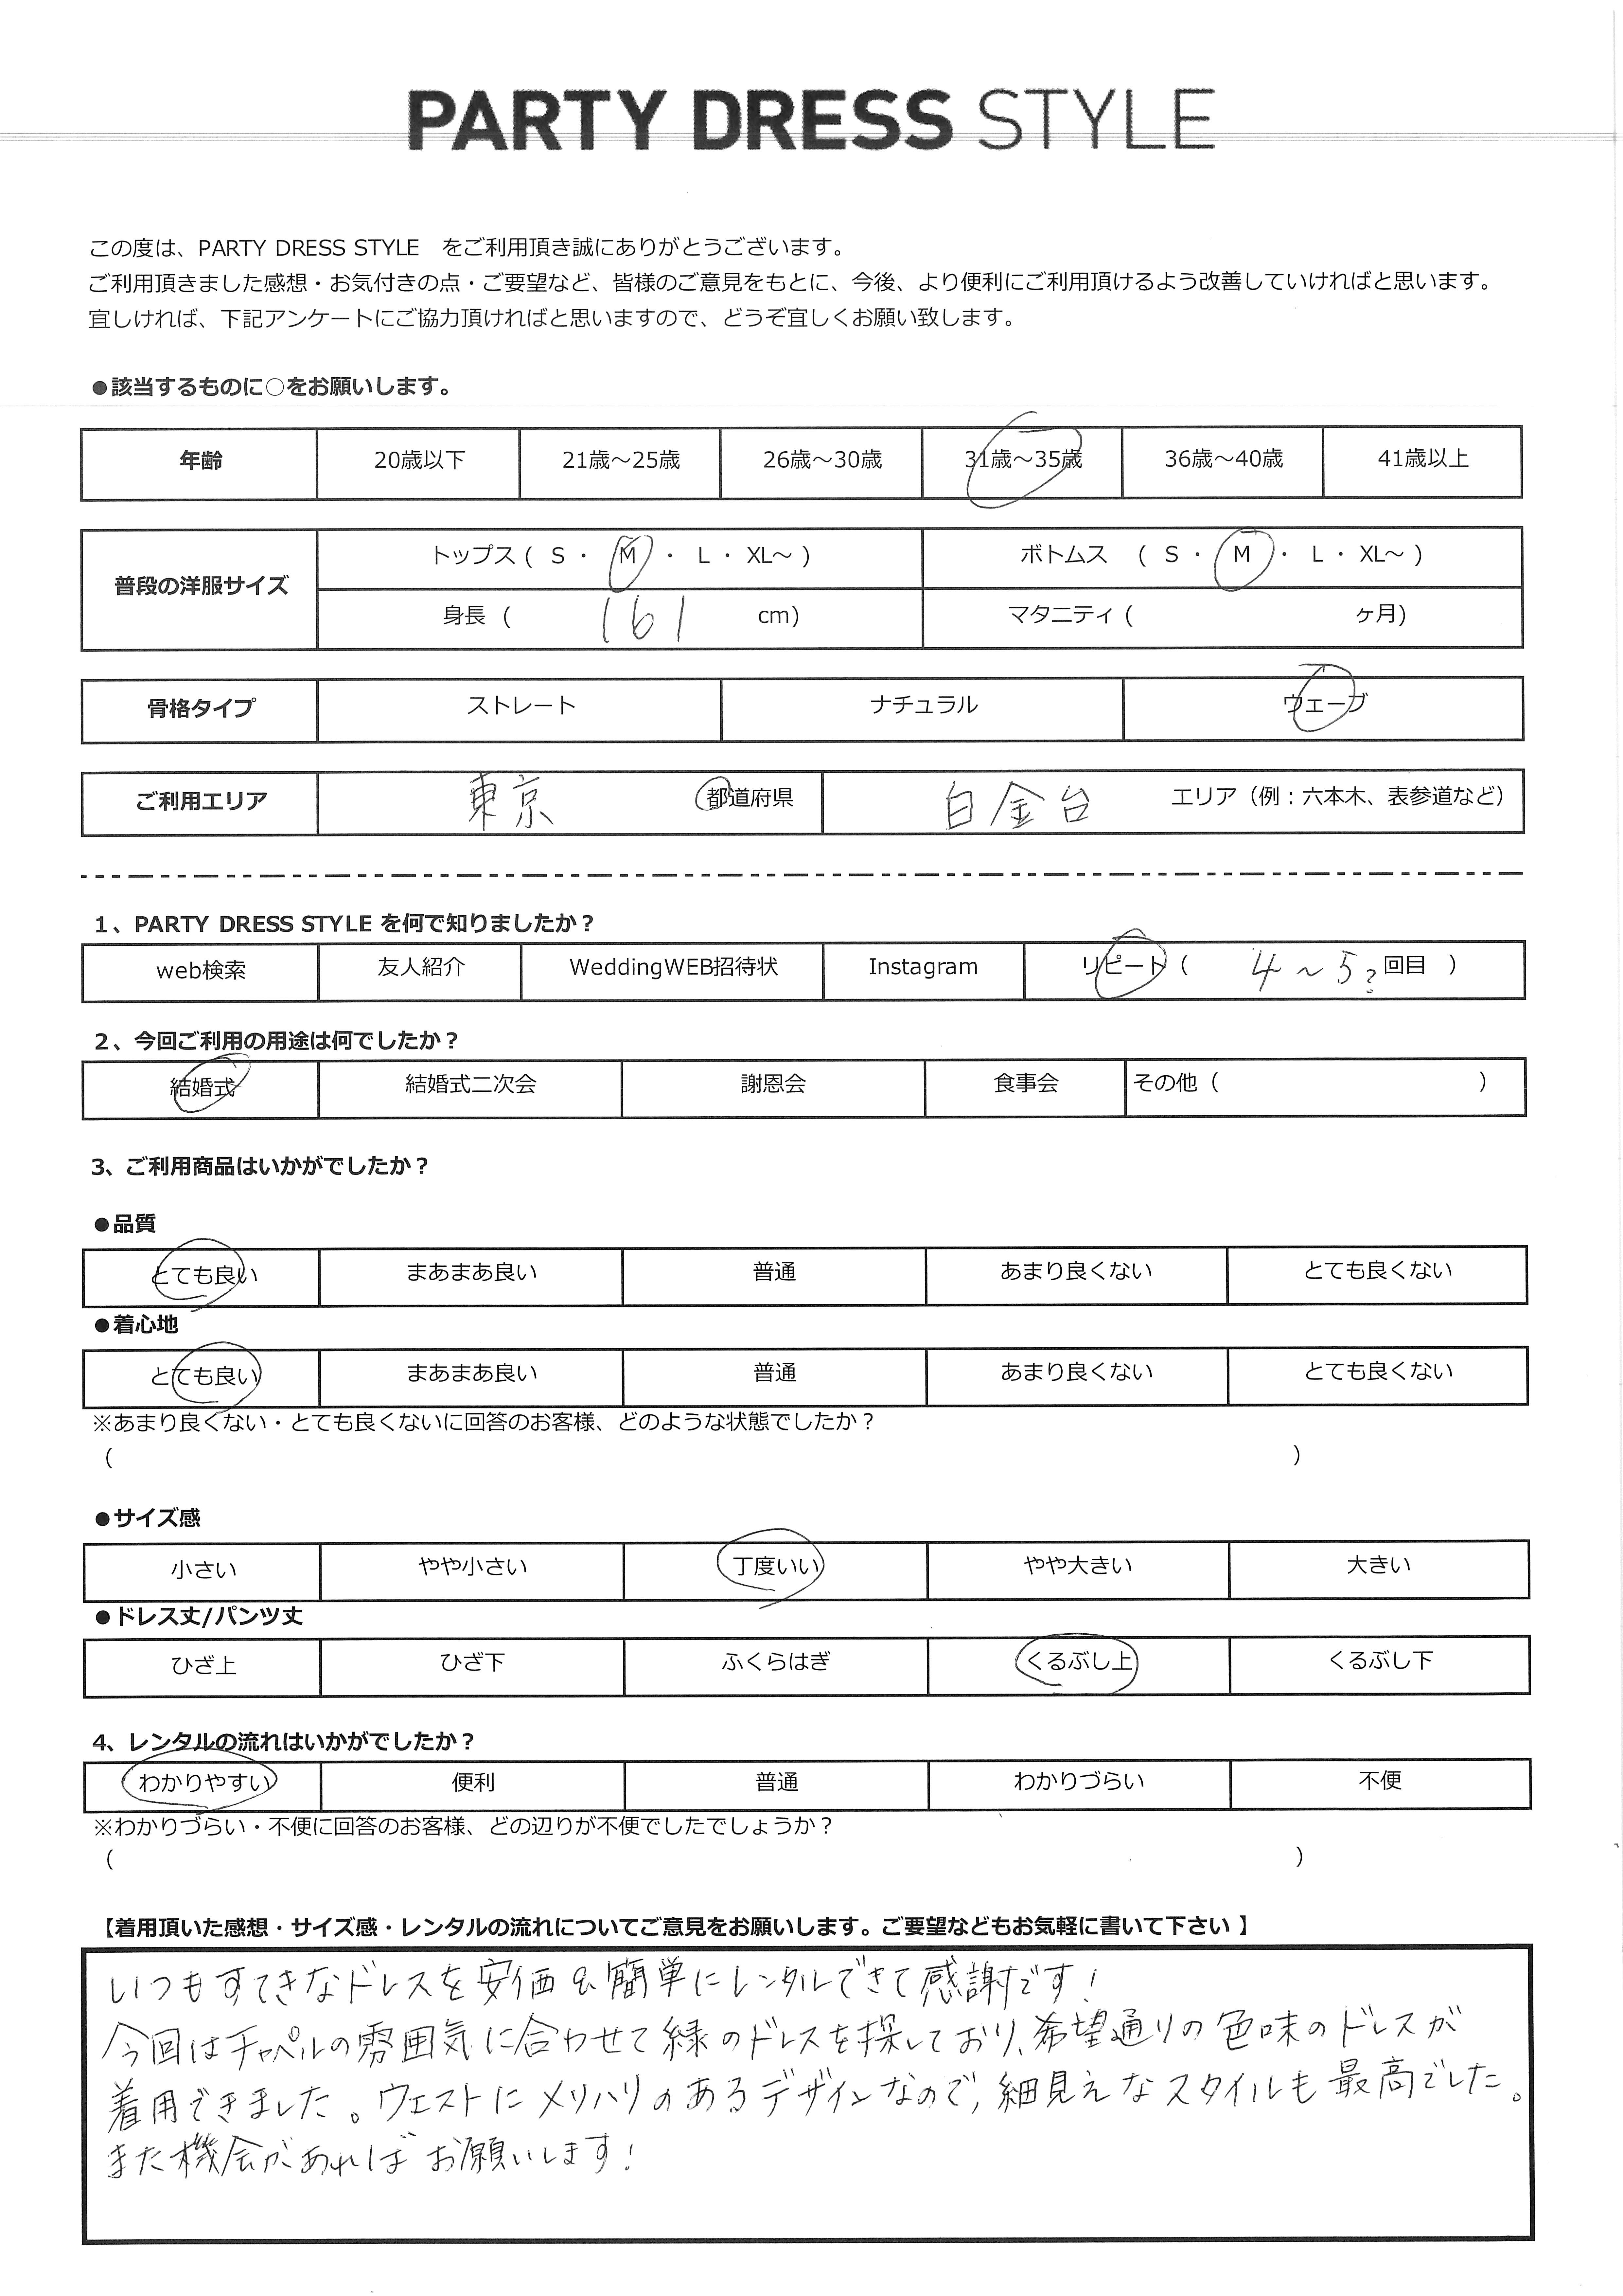 PARTY DRESS STYLE
この度は、PARTY DRESS STYLE　をご利用頂き誠にありがとうございます。
ご利用頂きました感想・お気付きの点・ご要望など、皆様のご意見をもとに、今後、より便利にご利用頂けるよう改善していければと思います。
宜しければ、下記アンケートにご協力頂ければと思いますので、どうぞ宜しくお願い致します。
●該当するものに○をお願いします。
年齢 20歳以下 21歳～25歳 26歳～30歳 31歳～35歳 36歳～40歳 41歳以上
普段の洋服サイズ トップス ( S ・ M ・ L ・ XL～ ) ボトムス ( S ・ M ・ L ・ XL～ )
身長 ( 161 cm) マタニティ ( ヶ月)
骨格タイプ ストレート ナチュラル ウェーブ
ご利用エリア 東京 都道府県 白金台 エリア（例：六本木、表参道など）
1、PARTY DRESS STYLE を何で知りましたか？
web検索 友人紹介 WeddingWEB招待状 Instagram リピート ( 4～5? 回目 )
2、今回ご利用の用途は何でしたか？
結婚式 結婚式二次会 謝恩会 食事会 その他 ( )
3、ご利用商品はいかがでしたか？
●品質
とても良い まあまあ良い 普通 あまり良くない とても良くない
●着心地
とても良い まあまあ良い 普通 あまり良くない とても良くない
※あまり良くない・とても良くないに回答のお客様、どのような状態でしたか？
( )
●サイズ感
小さい やや小さい 丁度いい やや大きい 大きい
●ドレス丈/パンツ丈
ひざ上 ひざ下 ふくらはぎ くるぶし上 くるぶし下
4、レンタルの流れはいかがでしたか？
わかりやすい 便利 普通 わかりづらい 不便
※わかりづらい・不便に回答のお客様、どの辺りが不便でしたでしょうか？
( )
【着用頂いた感想・サイズ感・レンタルの流れについてご意見をお願いします。ご要望などもお気軽に書いて下さい 】
いつもすてきなドレスを安価&簡単にレンタルできて感謝です!
今回はチャペルの雰囲気に合わせて緑のドレスを探しており、希望通りの色味のドレスが
着用できました。ウエストにメリハリのあるデザインなので、細見えなスタイルも最高でした。
また機会があればお願いします!